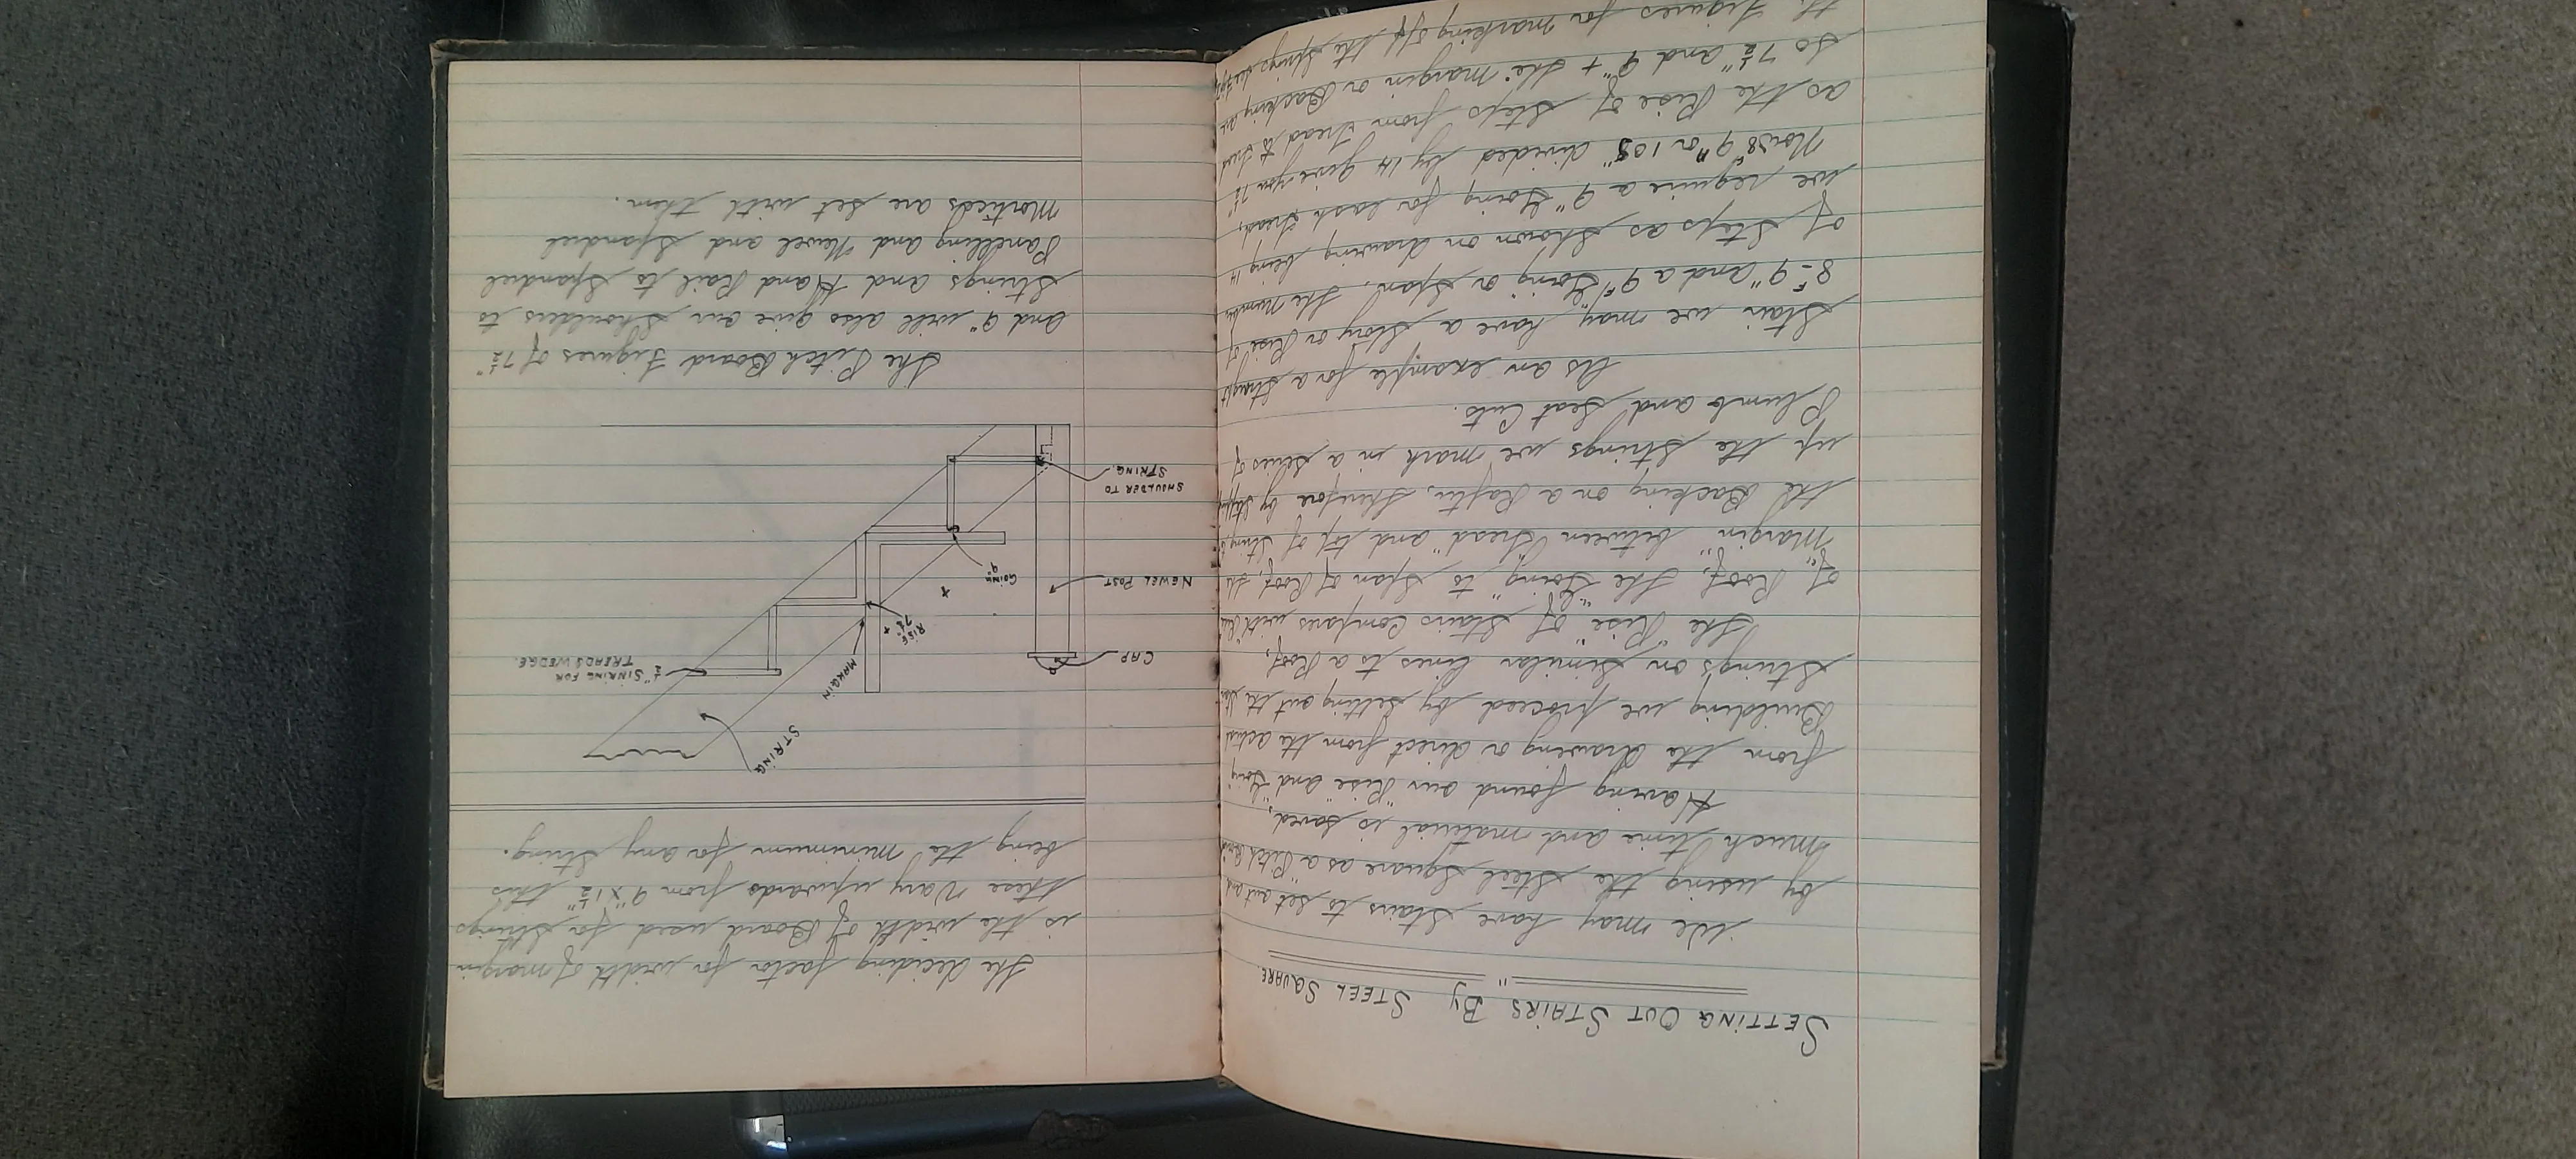 SETTING OUT STAIRS BY STEEL SQUARE.
We may have Stairs to set out and
by using the Steel Square as a "Pitch Board"
much time and material is saved,
Having found our "Rise" and "Going"
from the drawing or direct from the actual
Building we proceed by setting out the
Strings on similar lines to a Roof,
The "Rise" of Stairs Compares with
of Roof, the "Going" to Span of Roof, the
"Margin" between "Tread" and top of String to
the Backing on a Rafter, therefore by
up the Strings we mark in a series of
Plumb and Seat Cuts.
As an example for a Straight
Stair we may have a Story or Rise of
8F-9" and a 9F Going or Span, the Number
of Steps as shown on drawing being 14
we require a 9" Going for each tread,
Now 8F 9" or 105" divided by 14 gives you 7½"
as the Rise of Steps from tread to tread
so 7½" and 9" + the margin or Backing are
the Figures for marking off the Strings
The deciding factor for width of margin
is the width of Board used for Strings
these Vary upwards from 9" x 1½" this
being the minimum for any String.
STRING
MARGIN
½" SINKING FOR
TREADS WEDGE.
CAP
RISE
7½" +
NEWEL POST
GOING
9"
+
SHOULDER TO
STRING.
The Pitch Board Figures of 7½"
and 9" will also give our Shoulders to
Strings and Hand Rail to Spandrel
Panelling and Newel and Spandrel
are set with them.